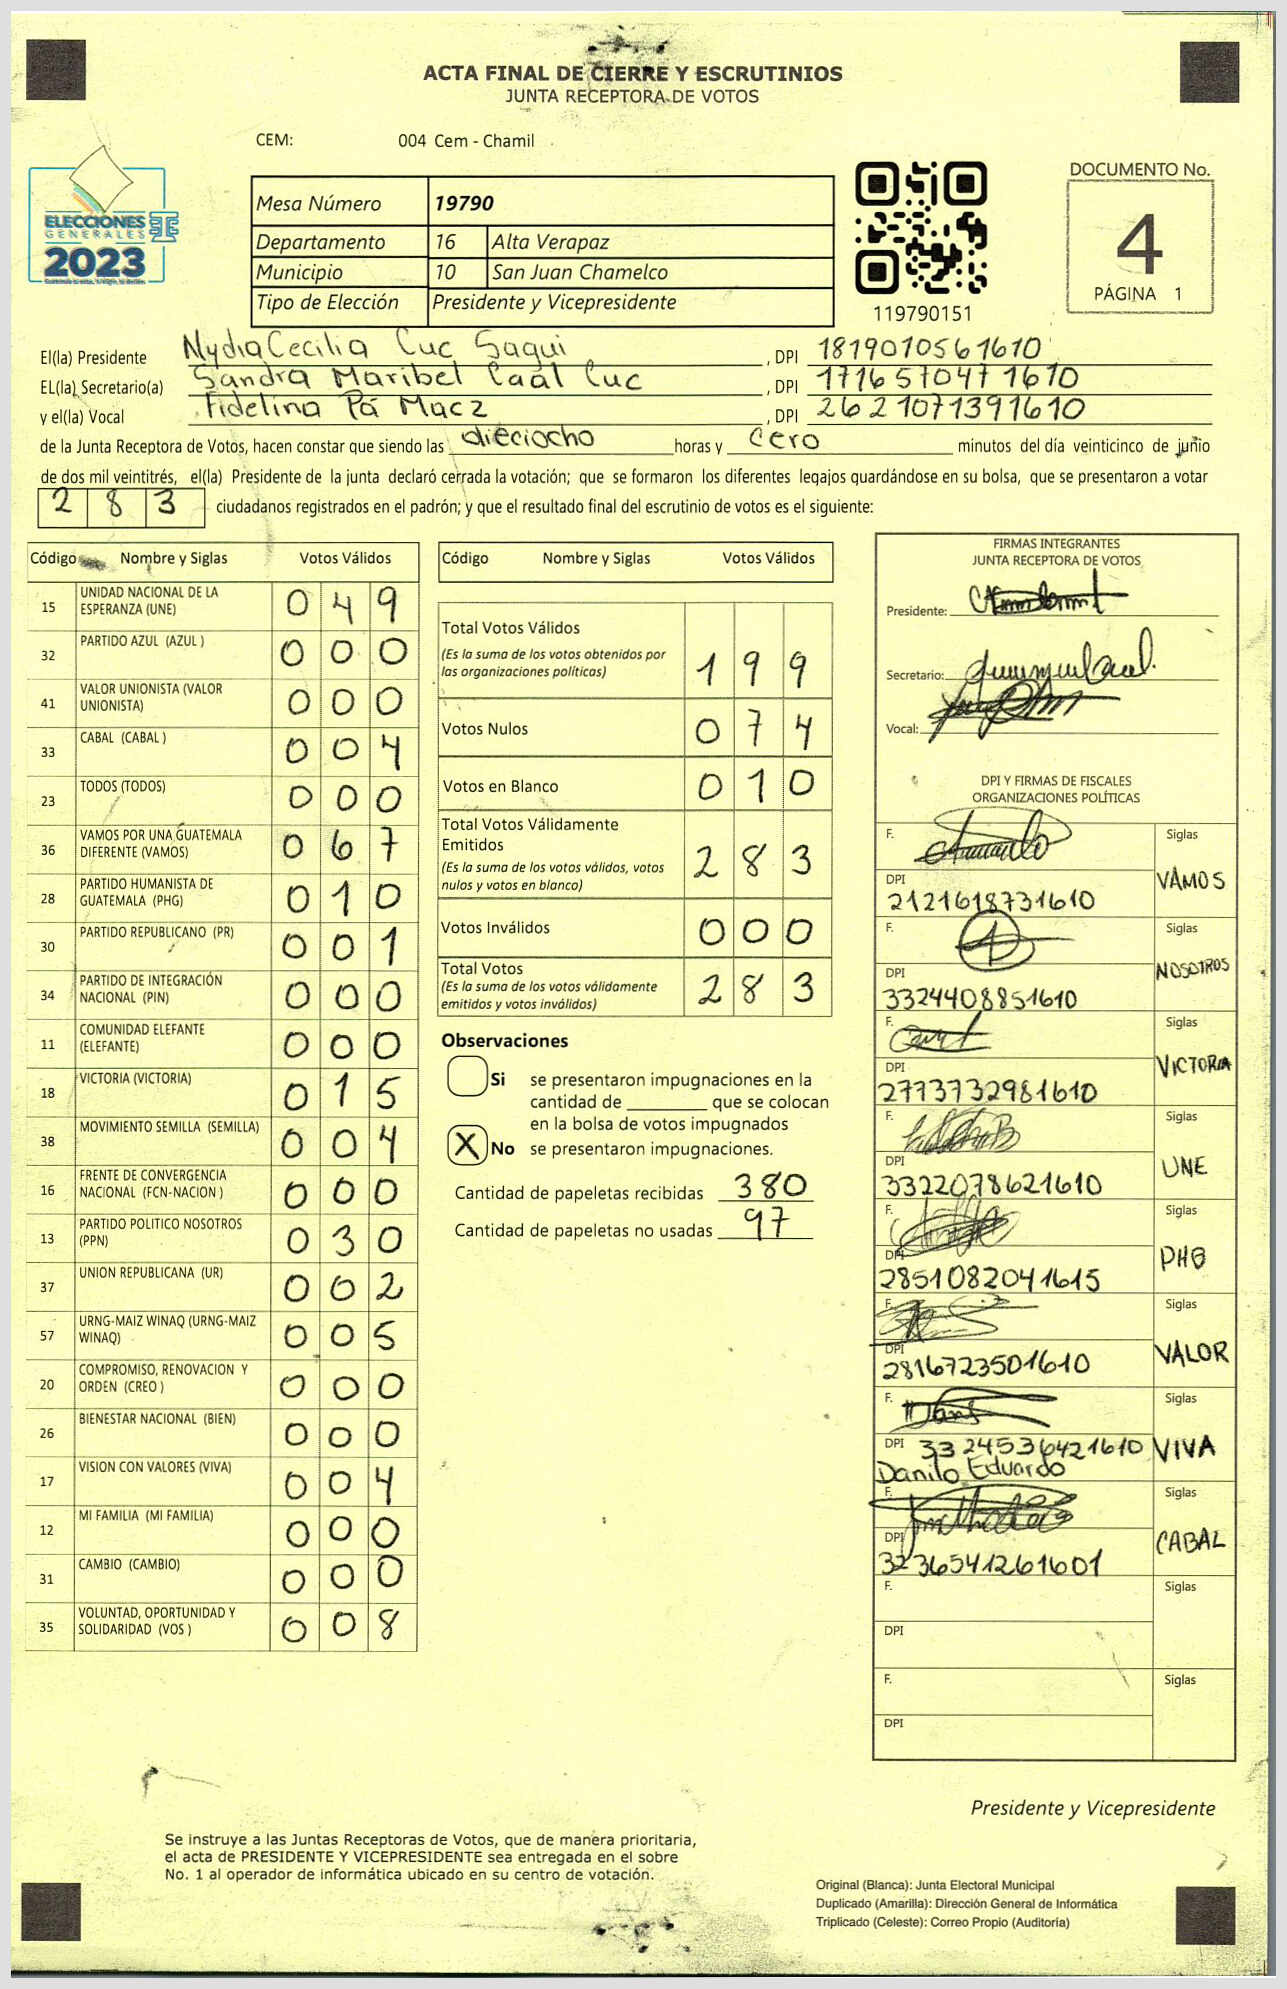 ACTA FINAL DE CIERRE Y ESCRUTINIOS
JUNTA RECEPTORA DE VOTOS
CEM: 004 Cem - Chamil
ELECCIONES
GENERALES
2023
Mesa Número 19790
Departamento 16 Alta Verapaz
Municipio 10 San Juan Chamelco
Tipo de Elección Presidente y Vicepresidente
119790151
DOCUMENTO No.
4
PÁGINA 1
El(la) Presidente Nydia Cecilia Cuc Saqui , DPI 1819010561610
EL(la) Secretario(a) Sandra Maribel Caal Cuc , DPI 1716570471610
y el(la) Vocal Fidelina Pá Macz , DPI 2621071391610
de la Junta Receptora de Votos, hacen constar que siendo las dieciocho horas y cero minutos del día veinticinco de junio
de dos mil veintitrés, el(la) Presidente de la junta declaró cerrada la votación; que se formaron los diferentes legajos quardándose en su bolsa, que se presentaron a votar
283 ciudadanos registrados en el padrón; y que el resultado final del escrutinio de votos es el siguiente:
Código Nombre y Siglas Votos Válidos
15 UNIDAD NACIONAL DE LA ESPERANZA (UNE) 049
32 PARTIDO AZUL (AZUL ) 000
41 VALOR UNIONISTA (VALOR UNIONISTA) 000
33 CABAL (CABAL ) 004
23 TODOS (TODOS) 000
36 VAMOS POR UNA GUATEMALA DIFERENTE (VAMOS) 067
28 PARTIDO HUMANISTA DE GUATEMALA (PHG) 010
30 PARTIDO REPUBLICANO (PR) 001
34 PARTIDO DE INTEGRACIÓN NACIONAL (PIN) 000
11 COMUNIDAD ELEFANTE (ELEFANTE) 000
18 VICTORIA (VICTORIA) 015
38 MOVIMIENTO SEMILLA (SEMILLA) 004
16 FRENTE DE CONVERGENCIA NACIONAL (FCN-NACION ) 000
13 PARTIDO POLITICO NOSOTROS (PPN) 030
37 UNION REPUBLICANA (UR) 002
57 URNG-MAIZ WINAQ (URNG-MAIZ WINAQ) 005
20 COMPROMISO, RENOVACION Y ORDEN (CREO ) 000
26 BIENESTAR NACIONAL (BIEN) 000
17 VISION CON VALORES (VIVA) 004
12 MI FAMILIA (MI FAMILIA) 000
31 CAMBIO (CAMBIO) 000
35 VOLUNTAD, OPORTUNIDAD Y SOLIDARIDAD (VOS ) 008
Código Nombre y Siglas Votos Válidos
Total Votos Válidos
(Es la suma de los votos obtenidos por las organizaciones políticas) 199
Votos Nulos 074
Votos en Blanco 010
Total Votos Válidamente Emitidos
(Es la suma de los votos válidos, votos nulos y votos en blanco) 283
Votos Inválidos 000
Total Votos
(Es la suma de los votos válidamente emitidos y votos inválidos) 283
Observaciones
Si se presentaron impugnaciones en la
cantidad de ________ que se colocan
en la bolsa de votos impugnados
X No se presentaron impugnaciones.
Cantidad de papeletas recibidas 380
Cantidad de papeletas no usadas 97
FIRMAS INTEGRANTES
JUNTA RECEPTORA DE VOTOS
Presidente:
Secretario:
Vocal:
DPI Y FIRMAS DE FISCALES
ORGANIZACIONES POLÍTICAS
F. Siglas
DPI 2121618731610 VAMOS
F. Siglas
DPI 3324408851610 NOSOTROS
F. Siglas
DPI 2773732981610 VICTORIA
F. Siglas
DPI 3322078621610 UNE
F. Siglas
DPI 2851082041615 PHG
F. Siglas
DPI 2816723501610 VALOR
F. Siglas
DPI 3324536421610 VIVA
Danilo Eduardo
F. Siglas
DPI 3236541261601 CABAL
F. Siglas
DPI
F. Siglas
DPI
Presidente y Vicepresidente
Se instruye a las Juntas Receptoras de Votos, que de manera prioritaria,
el acta de PRESIDENTE Y VICEPRESIDENTE sea entregada en el sobre
No. 1 al operador de informática ubicado en su centro de votación.
Original (Blanca): Junta Electoral Municipal
Duplicado (Amarilla): Dirección General de Informática
Triplicado (Celeste): Correo Propio (Auditoría)